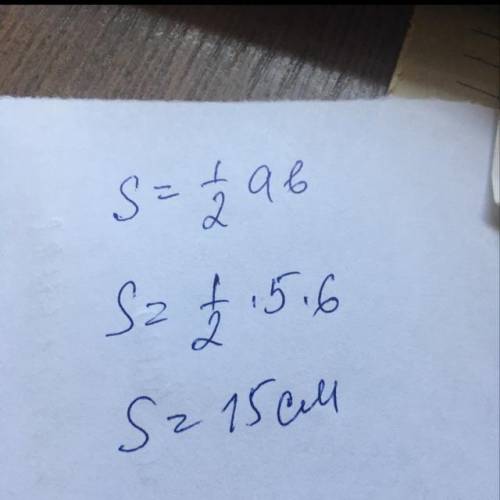 S = 1/2 ab
S = 1/2 · 5 · 6
S = 15 см